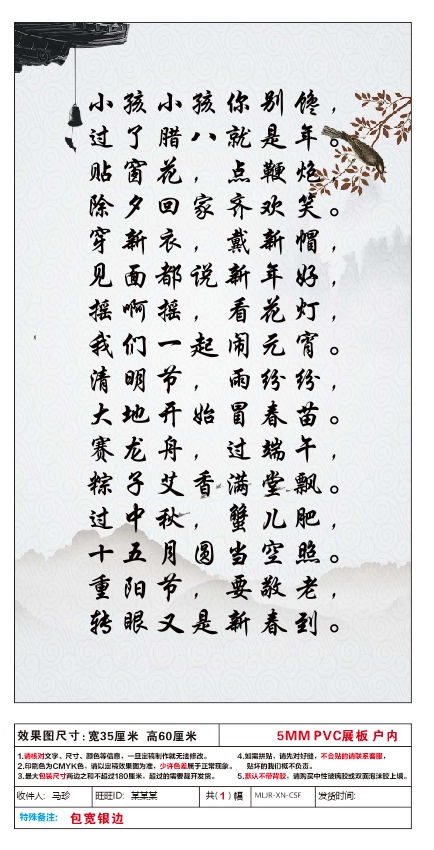 小孩小孩你别馋，
过了腊八就是年。
贴窗花，点鞭炮，
除夕回家齐欢笑。
穿新衣，戴新帽，
见面都说新年好，
摇啊摇，看花灯，
我们一起闹元宵。
清明节，雨纷纷，
大地开始冒春苗。
赛龙舟，过端午，
粽子艾香满堂飘。
过中秋，蟹儿肥，
十五月圆当空照。
重阳节，要敬老，
转眼又是新春到。
效果图尺寸：宽35厘米 高60厘米 5MM PVC展板 户内
1.请核对文字、尺寸、颜色等信息，一旦定稿制作就无法修改。
2.印刷色为CMYK色，请以定稿效果图为准，少许色差属于正常现象。
3.最大包装尺寸两边之和不超过180厘米，超过的需要裁开发货。
4.如需拼贴，请先对好缝，不会贴的请联系客服，
贴坏的我们概不负责。
5.默认不带背胶，请购买中性玻璃胶或双面泡沫胶上墙。
收件人：马珍 旺旺ID：某某某 共（1）幅 MLJR-XN-CSF 发货时间：
特殊备注： 包宽银边